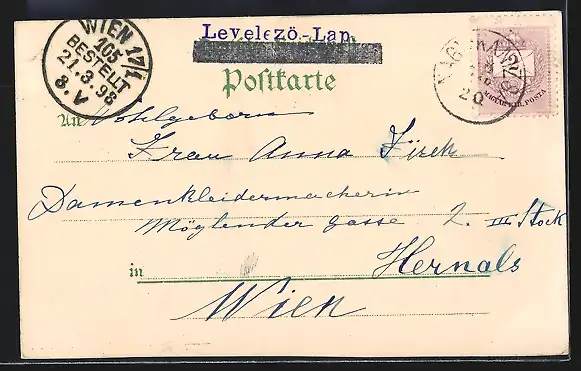 WIEN 17/1
105
BESTELLT
21.3.98
8.V
Levelezö-Lap.
Postkarte
20
MAGYAR KIR. POSTA
An Wohlgeborn
Frau Anna
Damenkleidermacherin
Möglender gasse 2. III Stock
in Hernals
Wien